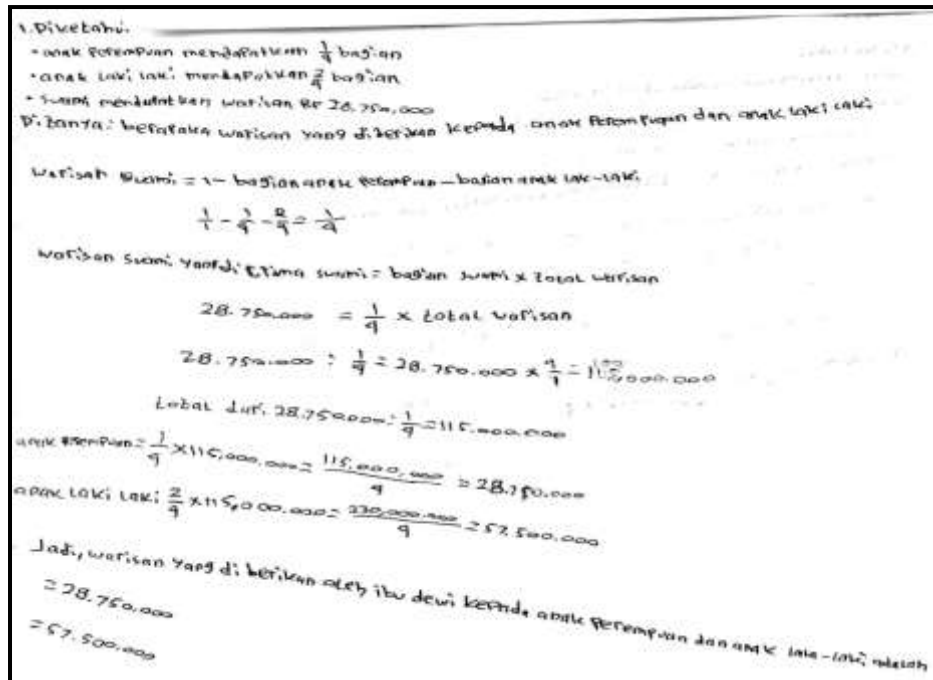 1. Diketahui.
• anak Perempuan mendapatkan 1/4 bagian
• anak laki laki mendapatkan 2/4 bagian
• suami mendapatkan warisan Rp 28.750.000
Ditanya: berapaka warisan yang diberikan kepada anak Perempuan dan anak laki laki
Warisan suami = 1 - bagian anak perempuan - bagian anak laki-laki
1/1 - 1/4 - 2/4 = 1/4
warisan suami yang di terima suami = bagian suami x total warisan
28.750.000 = 1/4 x total warisan
28.750.000 : 1/4 = 28.750.000 x 4/1 = 115.000.000
total dari 28.750.000 : 1/4 = 115.000.000
anak perempuan = 1/4 x 115,000,000 = 115,000,000/4 = 28.750.000
anak laki laki 2/4 x 115,000.000 = 230,000.000/4 = 57.500.000
Jadi, warisan yang di berikan oleh ibu dewi kepada anak perempuan dan anak laki-laki adalah
= 28.750.000
= 57.500.000